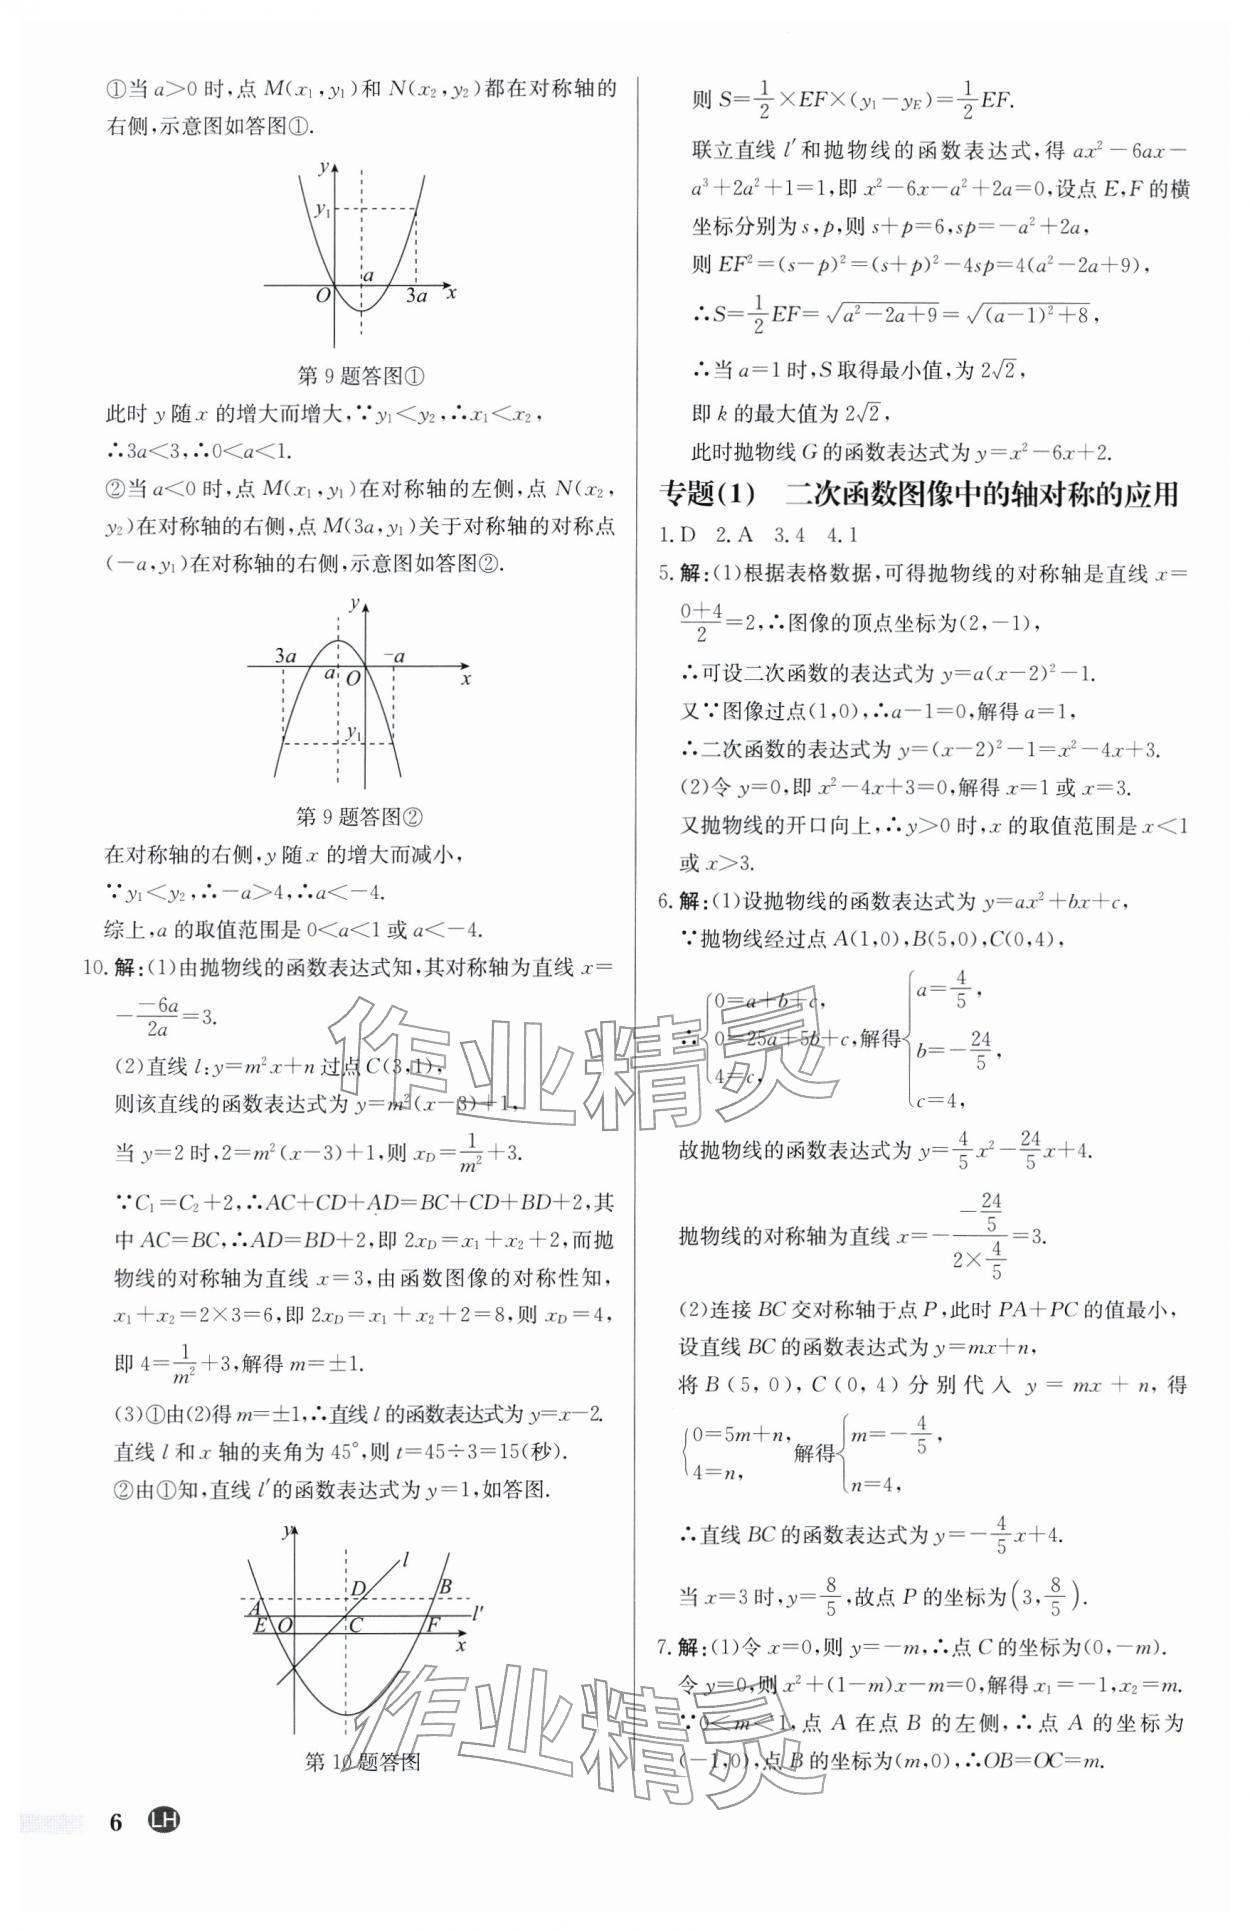 ①当 a>0 时,点 M(x₁,y₁)和 N(x₂,y₂)都在对称轴的
右侧,示意图如答图①.
y
y₁
a
O
3a
x
第9题答图①
此时 y 随 x 的增大而增大,∵y₁<y₂,∴x₁<x₂,
∴3a<3,∴0<a<1.
②当 a<0 时,点 M(x₁,y₁)在对称轴的左侧,点 N(x₂,
y₂)在对称轴的右侧,点 M(3a,y₁)关于对称轴的对称点
(-a,y₁)在对称轴的右侧,示意图如答图②.
y
3a
-a
a
O
x
y₁
第9题答图②
在对称轴的右侧,y 随 x 的增大而减小,
∵y₁<y₂,∴-a>4,∴a<-4.
综上,a 的取值范围是 0<a<1 或 a<-4.
10.解:(1)由抛物线的函数表达式知,其对称轴为直线 x=
-\frac{-6a}{2a}=3.
(2)直线 l:y=m²x+n 过点 C(3,1),
则该直线的函数表达式为 y=m²(x-3)+1,
当 y=2 时,2=m²(x-3)+1,则 x_D=\frac{1}{m²}+3.
∵C₁=C₂+2,∴AC+CD+AD=BC+CD+BD+2,其
中 AC=BC,∴AD=BD+2,即 2x_D=x₁+x₂+2,而抛
物线的对称轴为直线 x=3,由函数图像的对称性知,
x₁+x₂=2×3=6,即 2x_D=x₁+x₂+2=8,则 x_D=4,
即 4=\frac{1}{m²}+3,解得 m=±1.
(3)①由(2)得 m=±1,∴直线 l 的函数表达式为 y=x-2.
直线 l 和 x 轴的夹角为 45°,则 t=45÷3=15(秒).
②由①知,直线 l′的函数表达式为 y=1,如答图.
y
l
D
B
A
l′
E
O
C
F
x
第10题答图
6
LH
则 S=\frac{1}{2}×EF×(y₁-y_E)=\frac{1}{2}EF.
联立直线 l′和抛物线的函数表达式,得 ax²-6ax-
a³+2a²+1=1,即 x²-6x-a²+2a=0,设点 E,F 的横
坐标分别为 s,p,则 s+p=6,sp=-a²+2a,
则 EF²=(s-p)²=(s+p)²-4sp=4(a²-2a+9),
∴S=\frac{1}{2}EF=√(a²-2a+9)=√((a-1)²+8),
∴当 a=1 时,S 取得最小值,为 2√2,
即 k 的最大值为 2√2,
此时抛物线 G 的函数表达式为 y=x²-6x+2.
专题(1) 二次函数图像中的轴对称的应用
1.D 2.A 3.4 4.1
5.解:(1)根据表格数据,可得抛物线的对称轴是直线 x=
\frac{0+4}{2}=2,∴图像的顶点坐标为(2,-1),
∴可设二次函数的表达式为 y=a(x-2)²-1.
又∵图像过点(1,0),∴a-1=0,解得 a=1,
∴二次函数的表达式为 y=(x-2)²-1=x²-4x+3.
(2)令 y=0,即 x²-4x+3=0,解得 x=1 或 x=3.
又抛物线的开口向上,∴y>0 时,x 的取值范围是 x<1
或 x>3.
6.解:(1)设抛物线的函数表达式为 y=ax²+bx+c,
∵抛物线经过点 A(1,0),B(5,0),C(0,4),
∴{0=a+b+c, 0=25a+5b+c, 4=c, 解得{a=\frac{4}{5}, b=-\frac{24}{5}, c=4,
故抛物线的函数表达式为 y=\frac{4}{5}x²-\frac{24}{5}x+4.
抛物线的对称轴为直线 x=-\frac{-\frac{24}{5}}{2×\frac{4}{5}}=3.
(2)连接 BC 交对称轴于点 P,此时 PA+PC 的值最小,
设直线 BC 的函数表达式为 y=mx+n,
将 B(5,0),C(0,4)分别代入 y=mx+n,得
{0=5m+n, 4=n, 解得{m=-\frac{4}{5}, n=4,
∴直线 BC 的函数表达式为 y=-\frac{4}{5}x+4.
当 x=3 时,y=\frac{8}{5},故点 P 的坐标为(3,\frac{8}{5}).
7.解:(1)令 x=0,则 y=-m,∴点 C 的坐标为(0,-m).
令 y=0,则 x²+(1-m)x-m=0,解得 x₁=-1,x₂=m.
∵0<m<1,点 A 在点 B 的左侧,∴点 A 的坐标为
(-1,0),点 B 的坐标为(m,0),∴OB=OC=m.
作业精灵
作业精灵